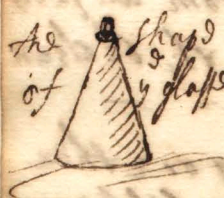 the shape
of yᵉ glasse